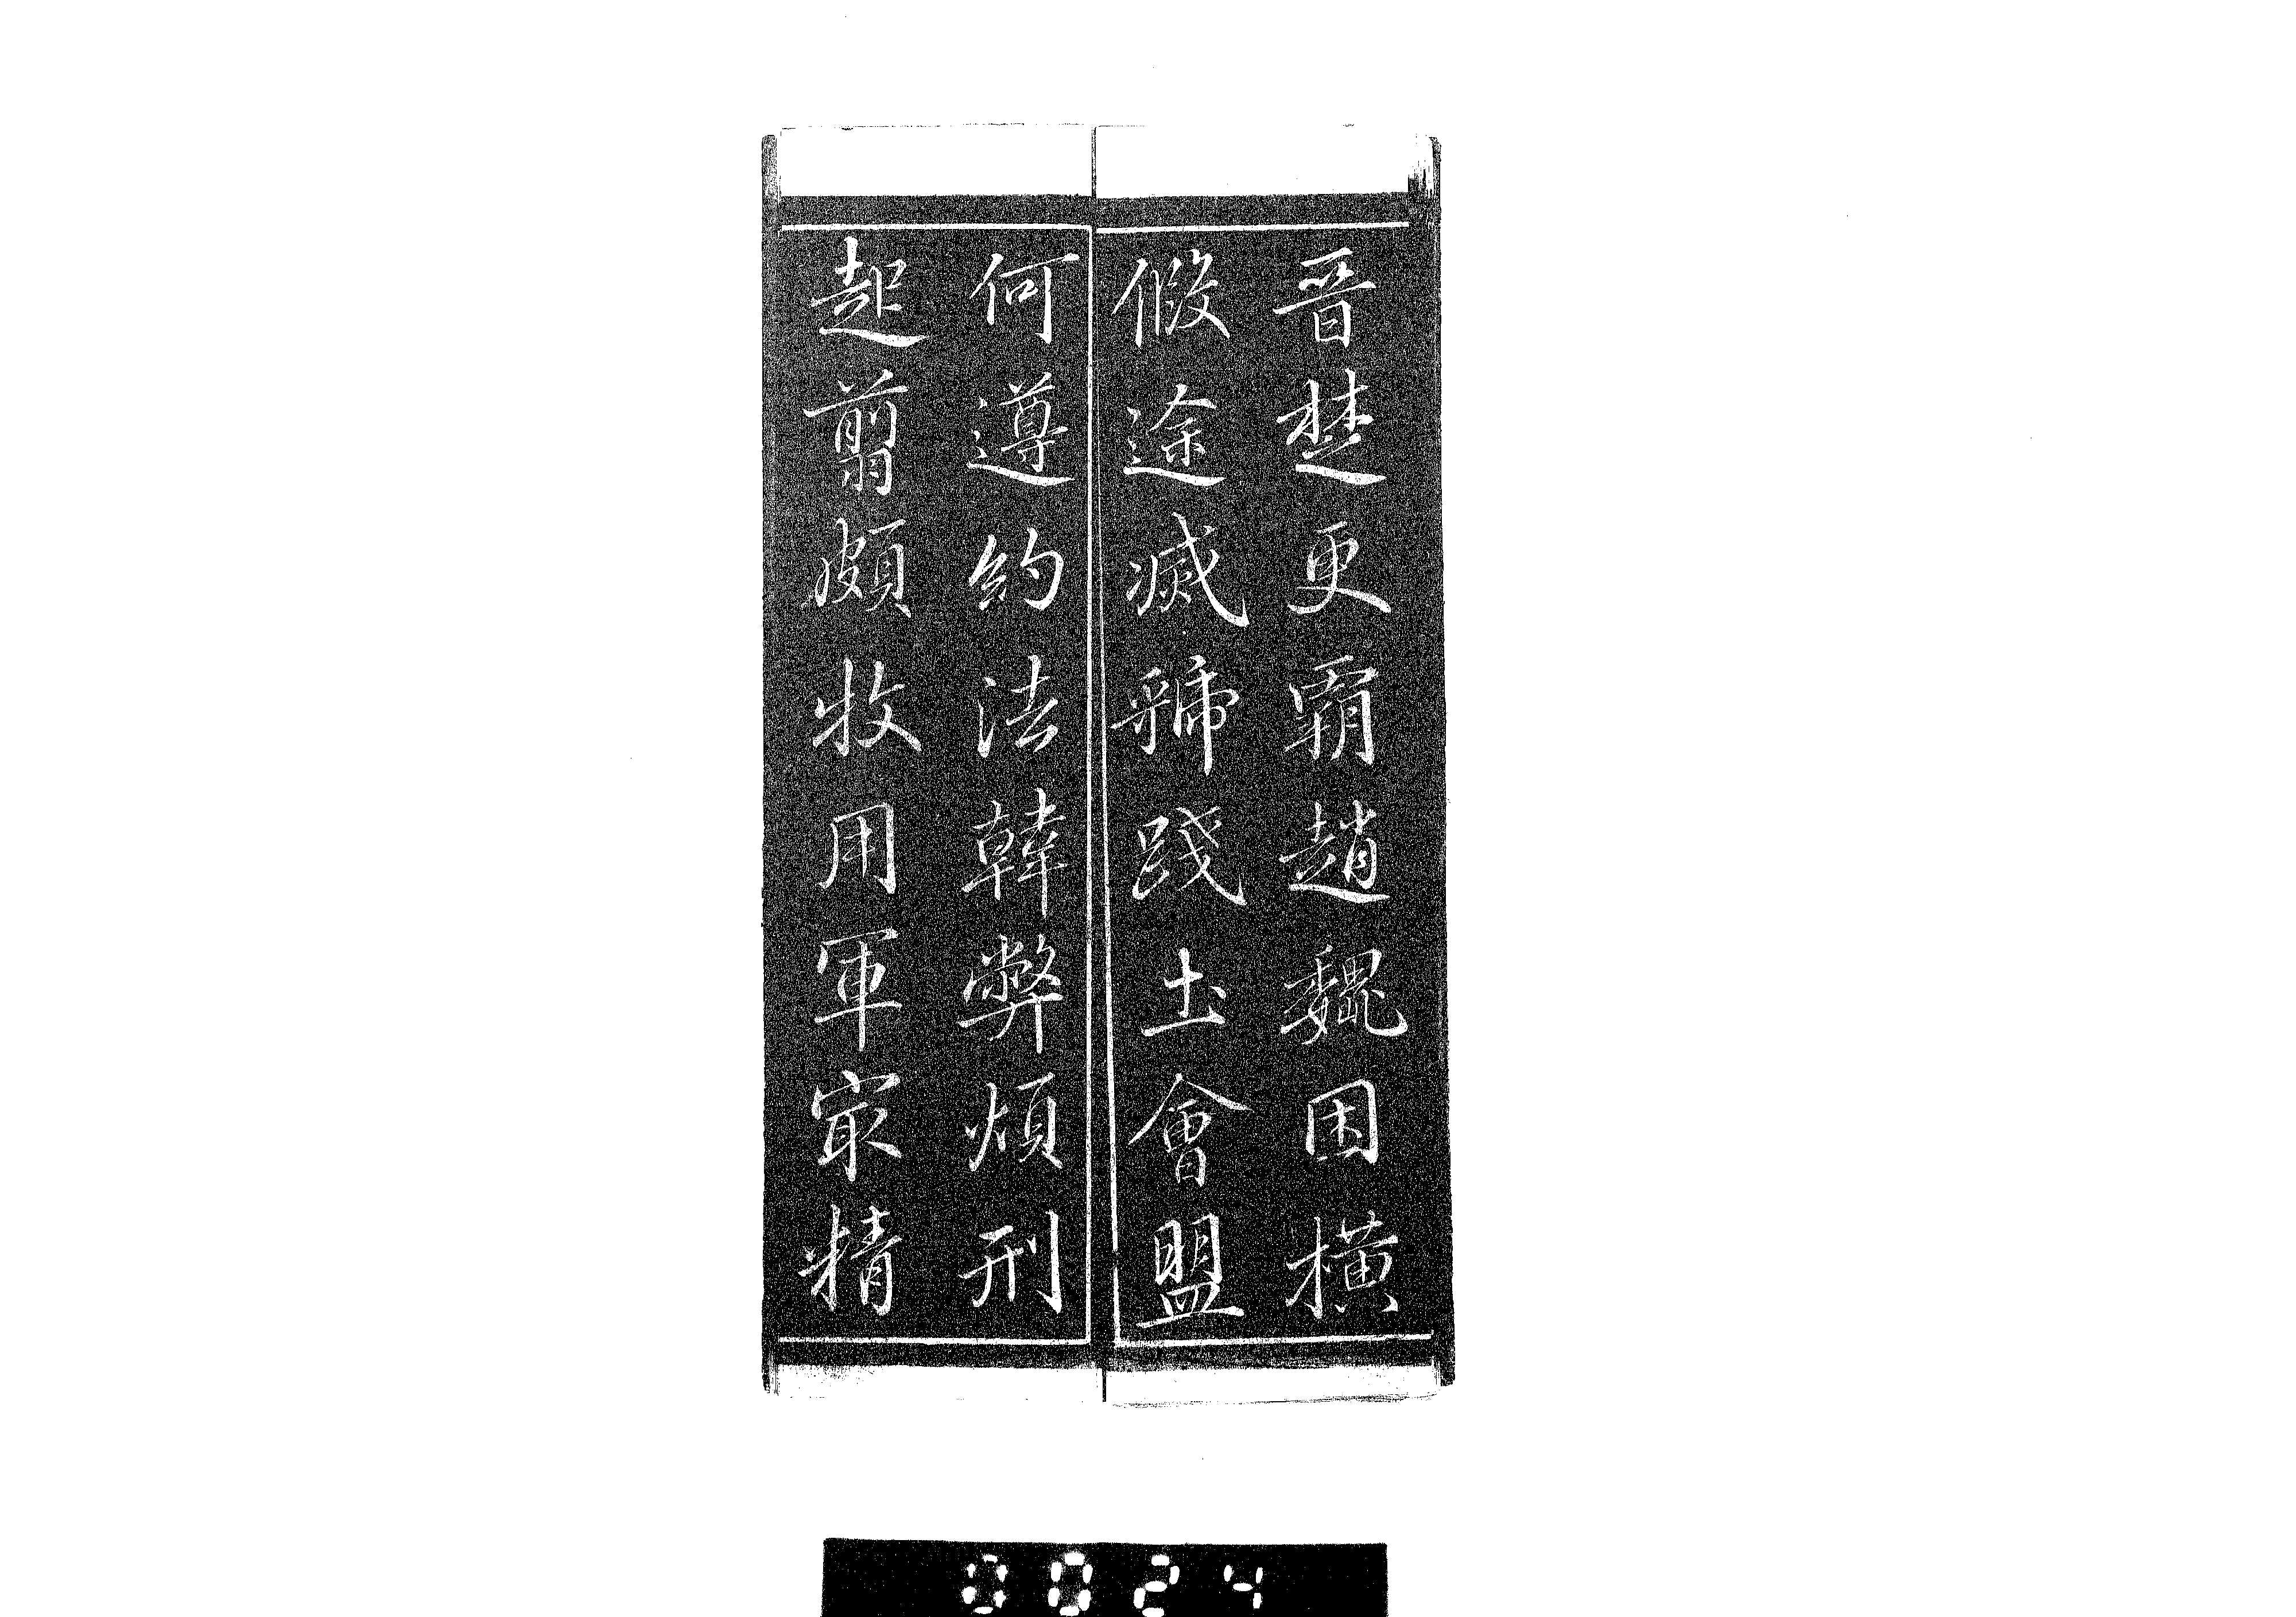 晉楚更霸趙魏困橫
假途滅虢踐土會盟
何遵約法韓弊煩刑
起翦頗牧用軍宼精
0024